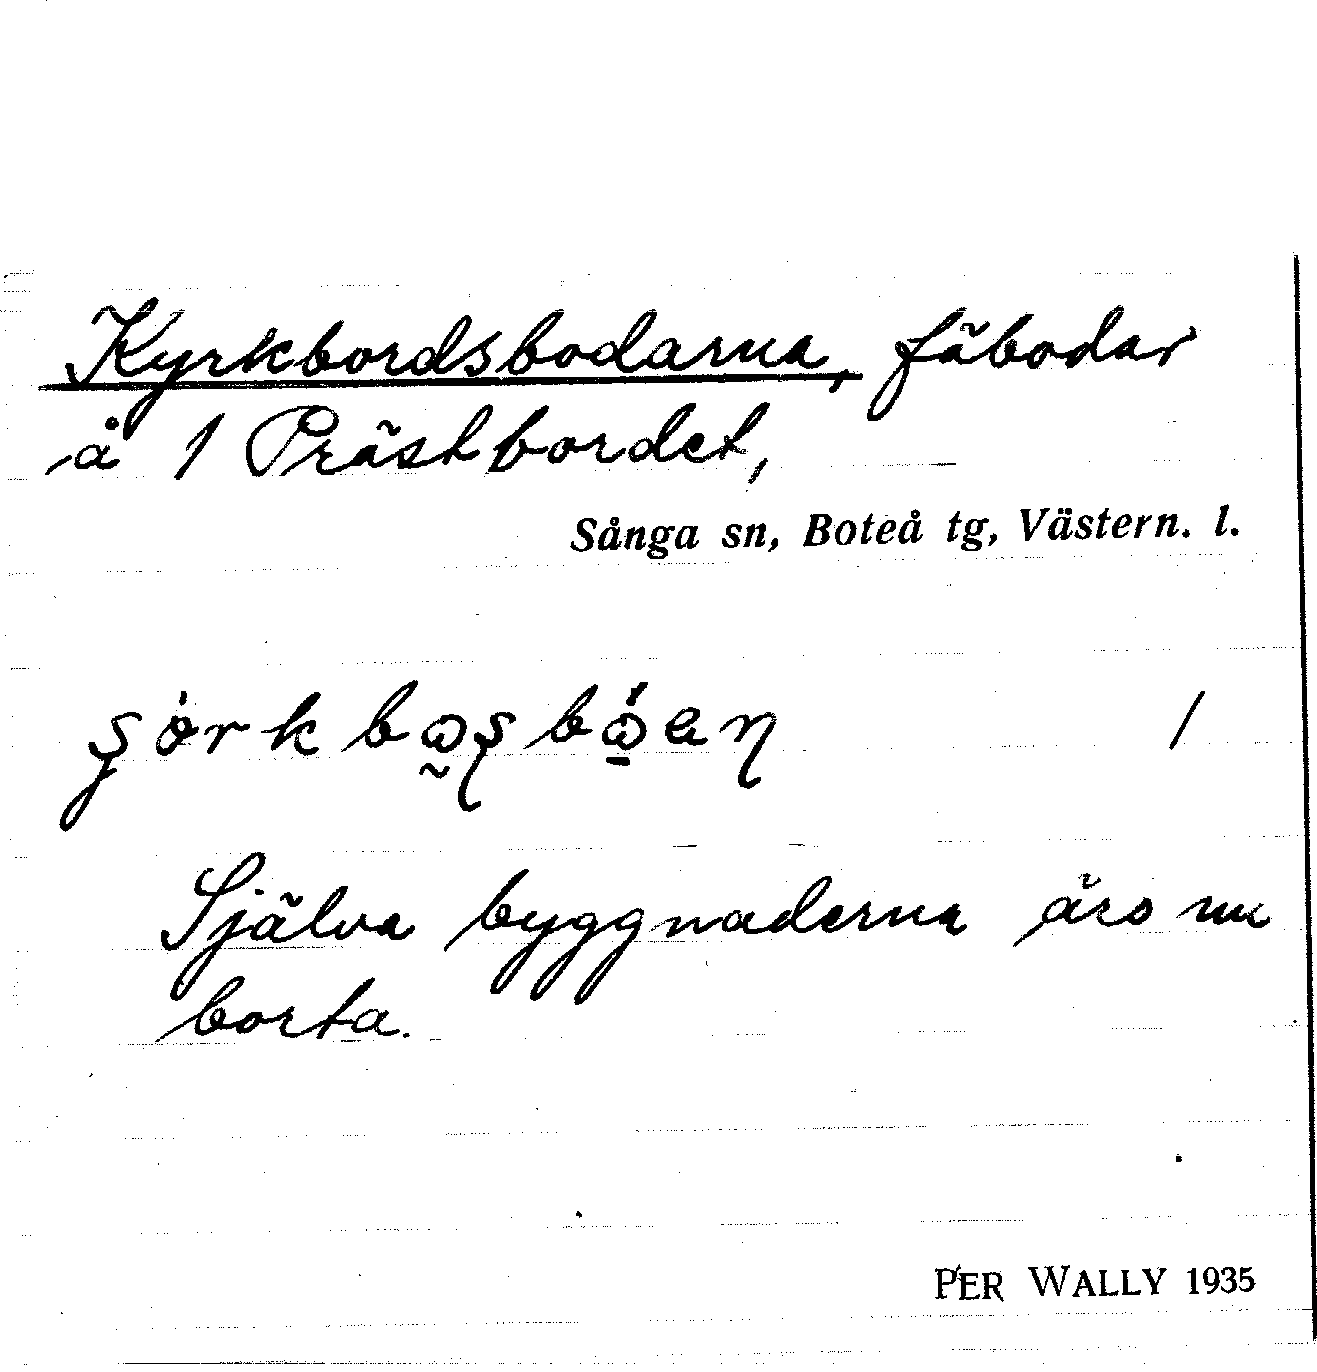 Kyrkbordsbodarna, fäbodar
å 1 Prästbordet,
Sånga sn, Boteå tg, Västern. l.
/
Själva byggnaderna äro nu
borta.
PER WALLY 1935